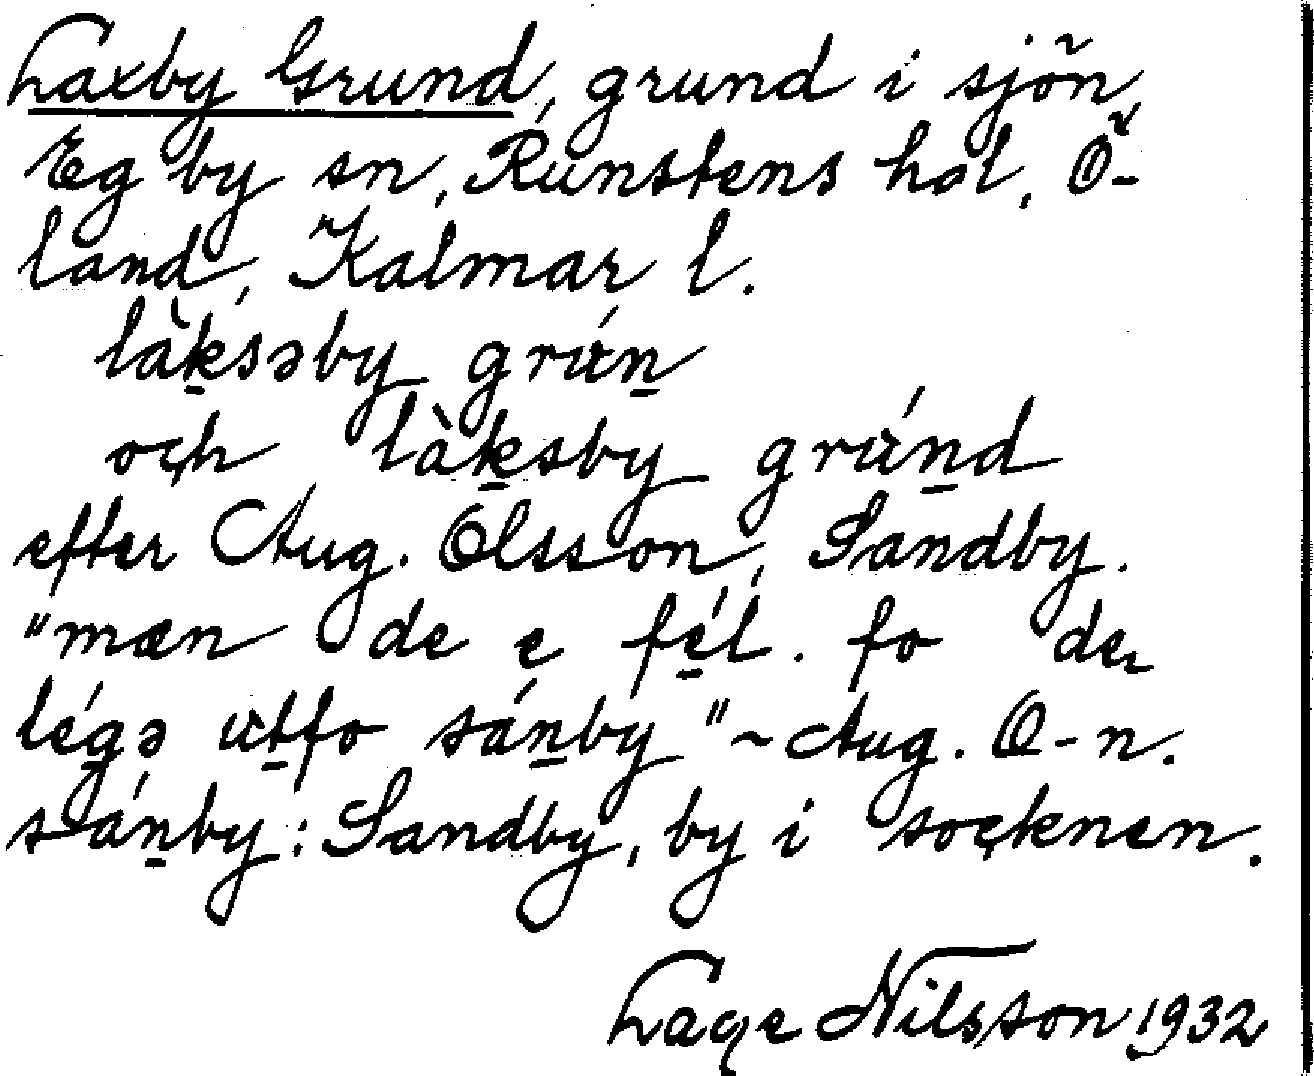 Laxby Grund, grund i sjön,
Egby sn, Runstens hd, Ö-
land, Kalmar l.
làksəby grún
och làksby grúnd
efter Aug. Olsson, Sandby.
"mæn de e fél. fo de
légə utfo sánby" ~ Aug. O-n.
sánby: Sandby, by i socknen.
Lage Nilsson 1932